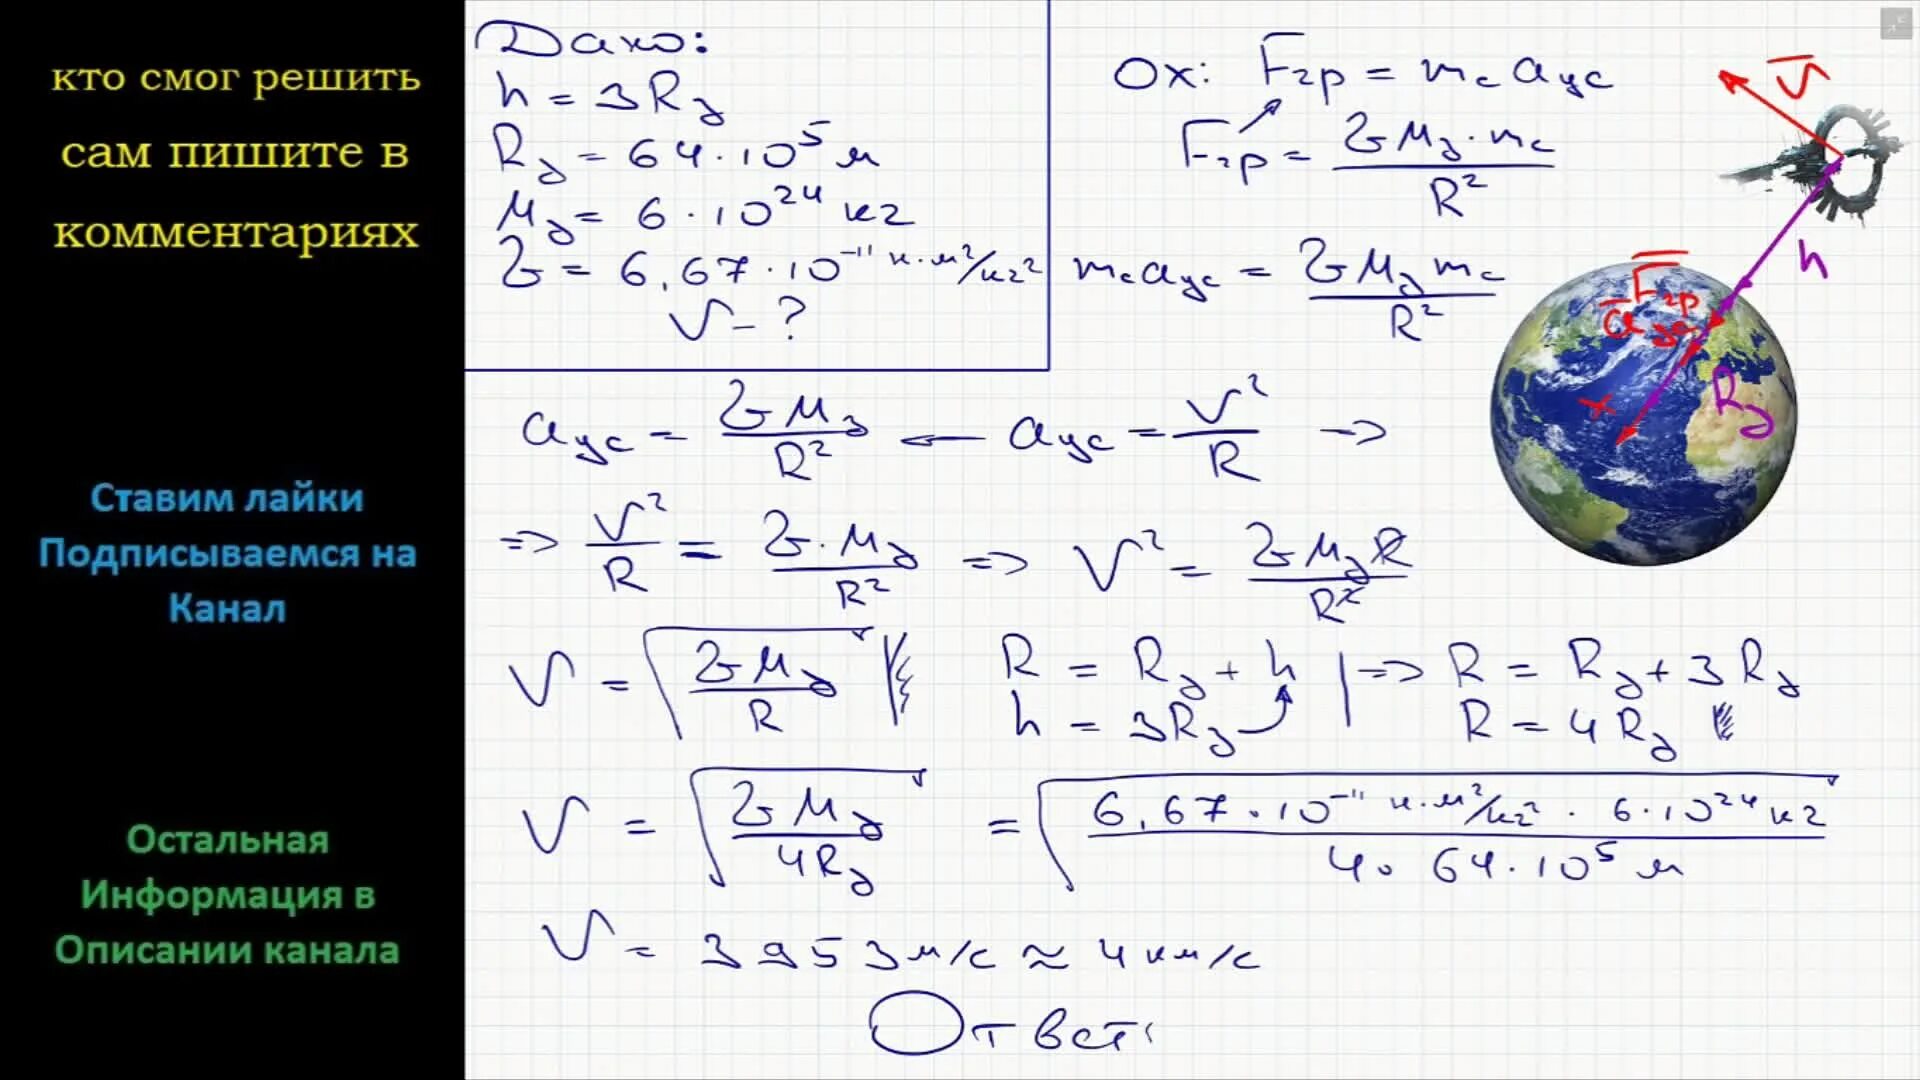 кто смог решить
сам пишите в
комментариях
Ставим лайки
Подписываемся на
Канал
Остальная
Информация в
Описании канала
Дано:
h = 3Rз
Rз = 64·10⁵ м
Mз = 6·10²⁴ кг
G = 6,67·10⁻¹¹ н·м²/кг²
V - ?
Ox: Fгр = mc aцс
Fгр = G Mз·mc / R²
mc aцс = G Mз mc / R²
V
h
Fгр
aцс
Rз
x
aцс = G Mз / R² ← aцс = V² / R =>
=> V² / R = G·Mз / R² => V² = G Mз R / R²
V = √(G Mз / R) R = Rз + h | => R = Rз + 3Rз
h = 3Rз R = 4Rз
V = √(G Mз / 4Rз) = √(6,67·10⁻¹¹ н·м²/кг² · 6·10²⁴ кг / 4·64·10⁵ м)
V = 3953 м/с ≈ 4 км/с
Ответ